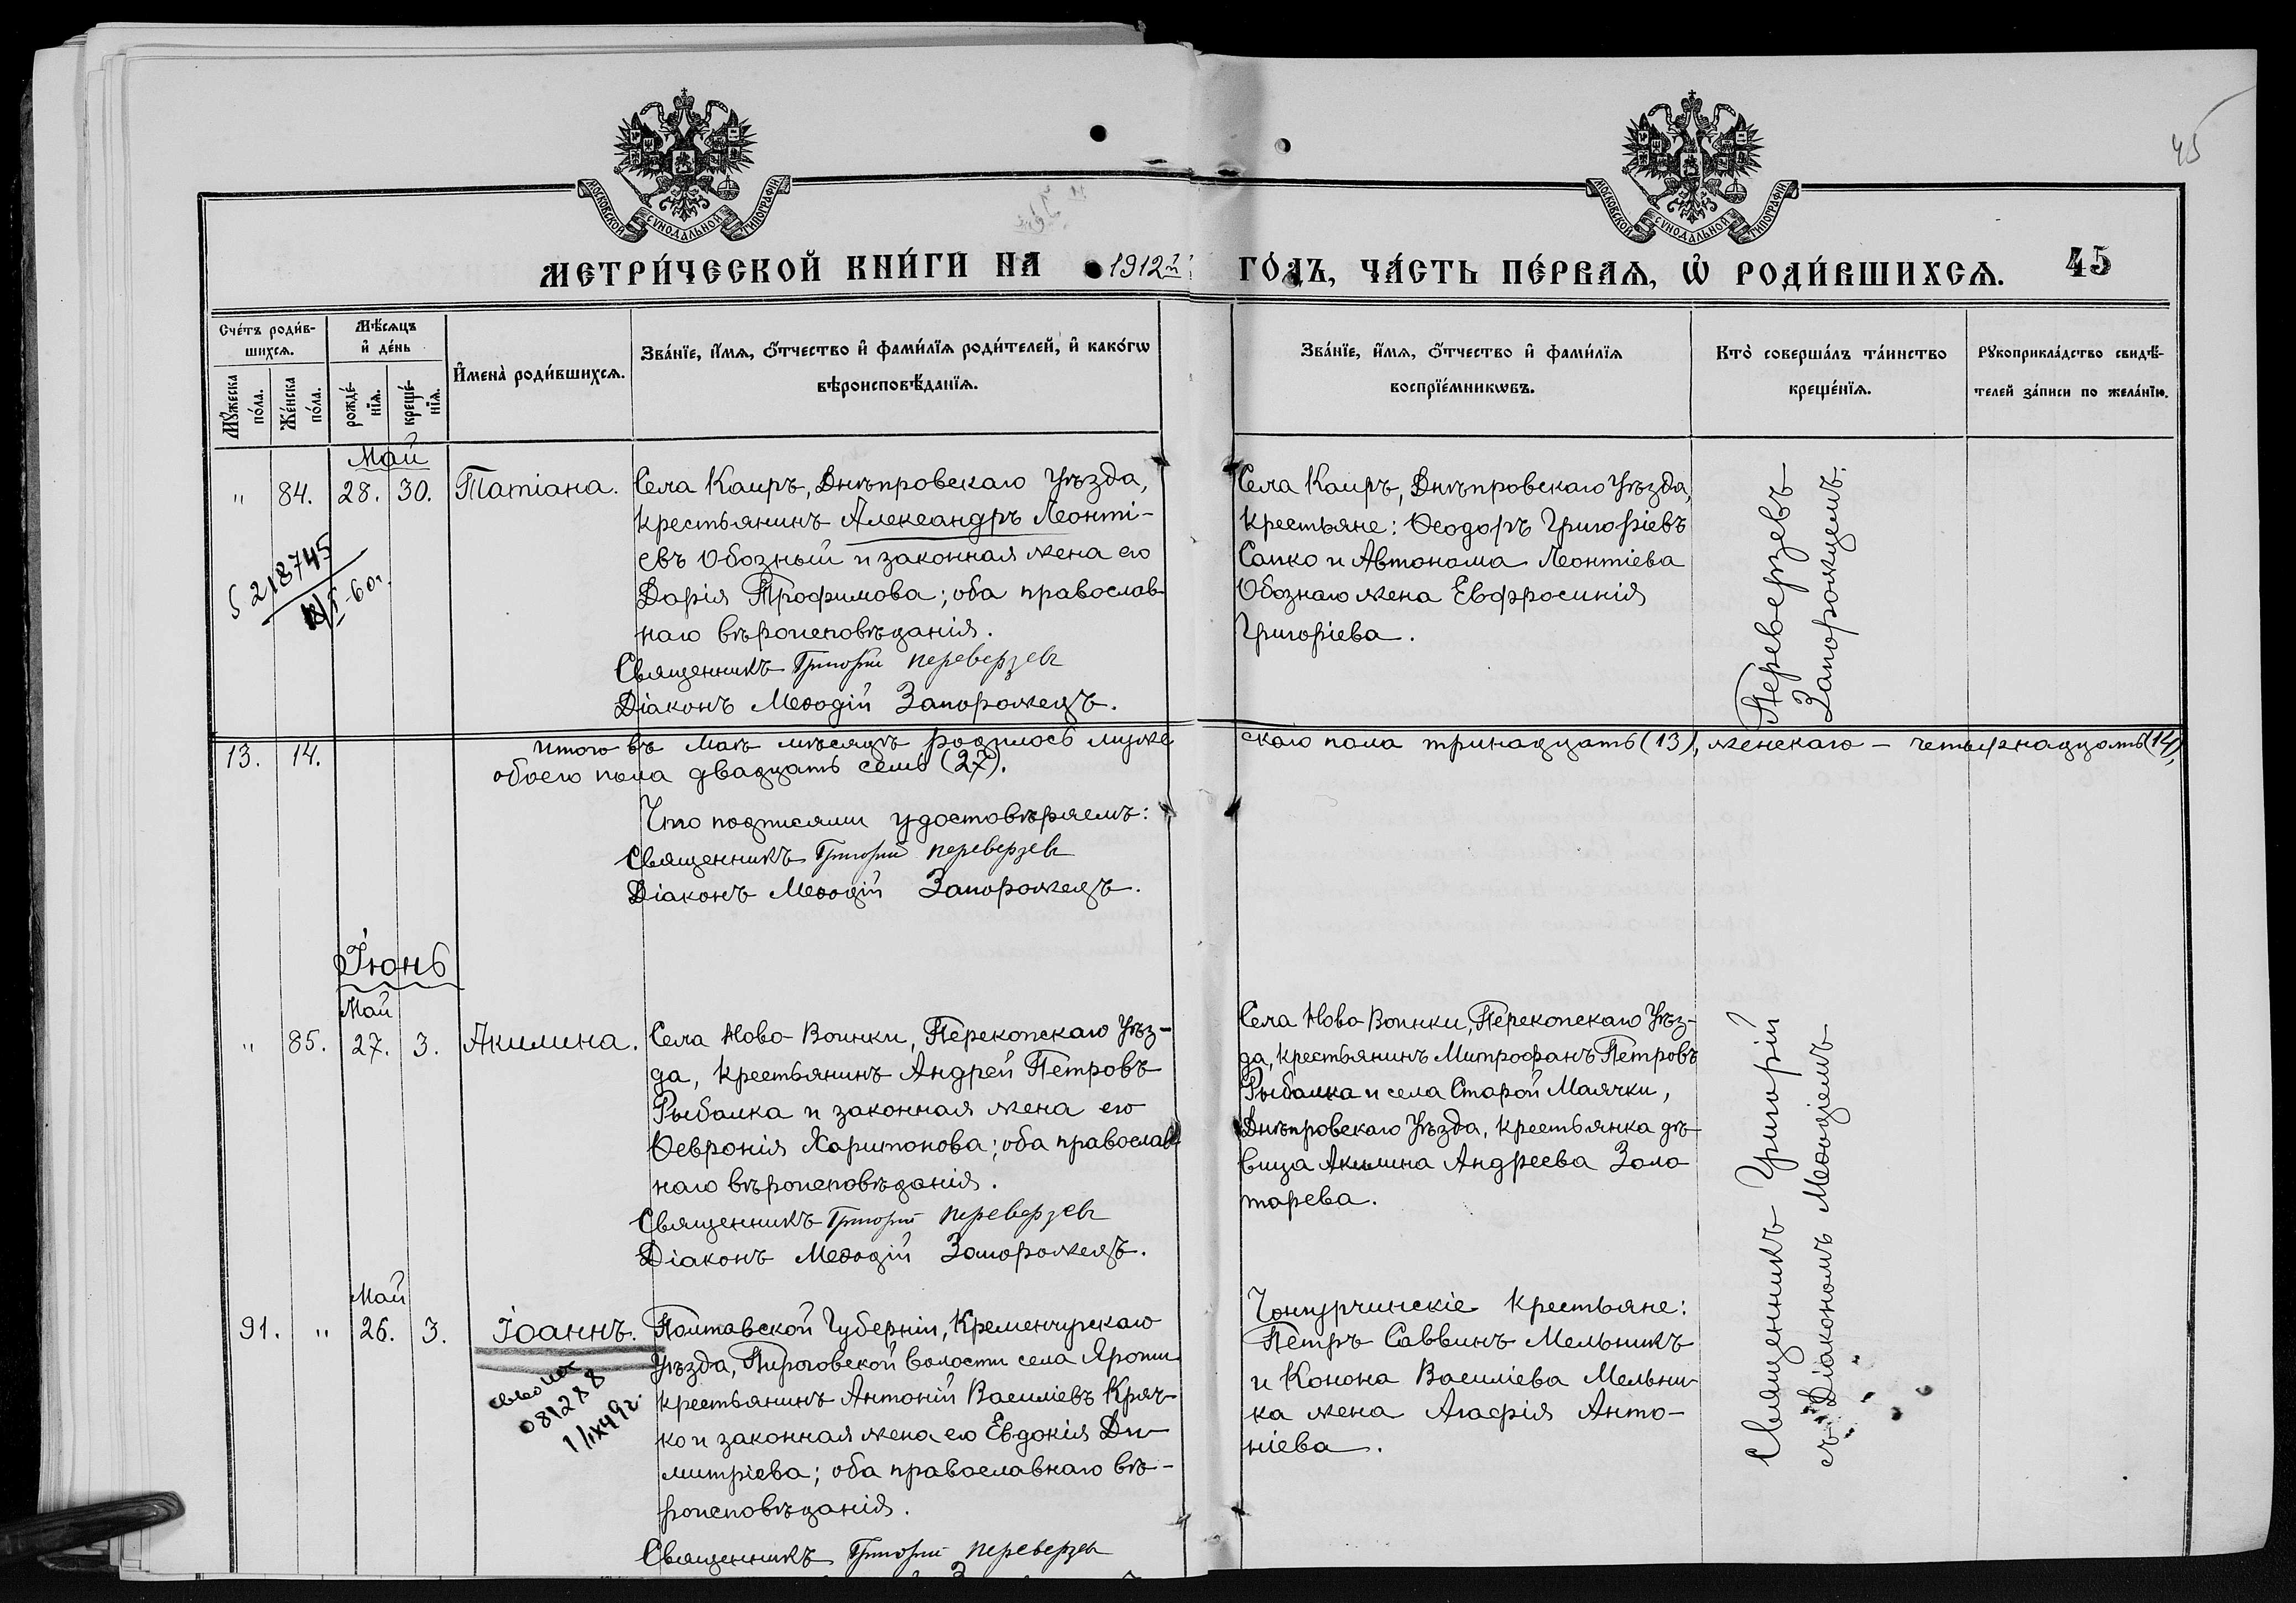 45
МОСКОВСКОЙ СУНОДАЛЬНОЙ ТИПОГРАФІИ
МОСКОВСКОЙ СУНОДАЛЬНОЙ ТИПОГРАФІИ
МЕТРИ́ЧЕСКОЙ КНИ́ГИ НА 1912й ГО́ДЪ, ЧА́СТЬ ПЕ́РВАѦ, Ѡ҆ РОДИ́ВШИХСѦ. 45
Сче́тъ роди́в-
шихсѧ.
Мꙋ́жеска по́ла.
Же́нска по́ла.
Мѣ́сѧцъ
и҆ де́нь
рожде́-нїѧ.
креще́-нїѧ.
И҆мена̀ роди́вшихсѧ.
Зва́нїе, и҆́мѧ, ѻ҆́тчество и҆ фами́лїѧ роди́телей, и҆ како́гѡ
вѣроисповѣ́данїѧ.
Зва́нїе, и҆́мѧ, ѻ҆́тчество и҆ фами́лїѧ
воспрїе́мникѡвъ.
Кто̀ соверша́лъ та́инство
креще́нїѧ.
Рꙋкоприкла́дство свидѣ́-
телей за́писи по жела́нїю.
Май
" 84. 28. 30. Татіана.
Села Каиръ, Днѣпровскаго Уѣзда,
крестьянинъ Александръ Леонті-
евъ Обозный и законная жена его
Дарія Трофимова; оба православ-
наго вѣроисповѣданія.
Священникъ Григорій Переверзевъ
Діаконъ Меѳодій Запорожецъ.
5 218745
Села Каиръ, Днѣпровскаго Уѣзда,
крестьяне: Ѳеодоръ Григоріевъ
Сапко и Автонома Леонтіева
Обознаго жена Евфросинія
Григоріева.
Переверзевъ
Запорожцемъ.
13. 14. Итого въ Маѣ мѣсяцѣ родилось мужескаго пола тринадцать (13), женскаго – четырнадцать (14),
обоего пола двадцать семь (27).
Что подписями удостовѣряемъ:
Священникъ Григорій Переверзевъ
Діаконъ Меѳодій Запорожецъ.
Іюнь
Май
" 85. 27. 3. Акилина.
Села Ново-Воинки, Перекопскаго Уѣз-
да, крестьянинъ Андрей Петровъ
Рыбалка и законная жена его
Ѳевронія Харитонова; оба православ-
наго вѣроисповѣданія.
Священникъ Григорій Переверзевъ
Діаконъ Меѳодій Запорожецъ.
Села Ново-Воинки, Перекопскаго Уѣз-
да, крестьянинъ Митрофанъ Петровъ
Рыбалка и села Старой Маячки,
Днѣпровскаго Уѣзда, крестьянка дѣ-
вица Акилина Андреева Золо
тарева.
Священникъ Григорій
съ Діакономъ Меѳодіемъ
Май
91. " 26. 3. Іоаннъ.
081288
1/IX49г.
Полтавской Губерніи, Кременчугскаго
Уѣзда, Пироговской волости села Яроши
крестьянинъ Антоній Василіевъ Кряч-
ко и законная жена его Евдокія Ди-
митріева; оба православнаго вѣ-
роисповѣданія.
Священникъ Григорій Переверзевъ
Чонгурчинскіе крестьяне:
Петръ Саввинъ Мельникъ
и Конона Василіева Мельни-
ка жена Агаѳія Анто-
ніева.